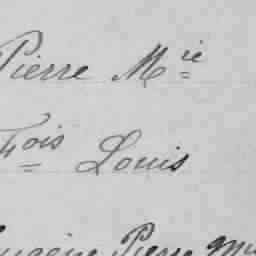 Pierre Mie
Fois Louis
Eugène Pierre